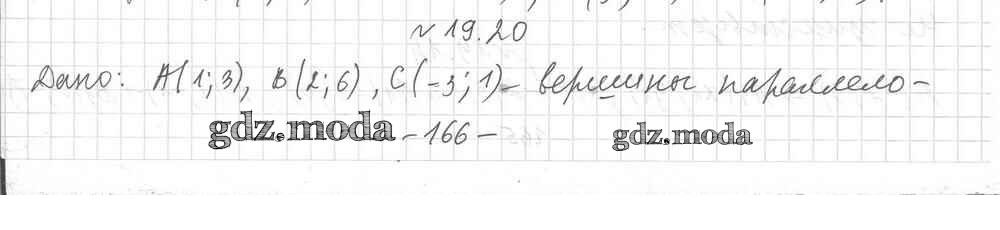 № 19.20
Дано: A(1;3), B(2;6), C(-3;1) - вершины параллело-
gdz.moda -166- gdz.moda